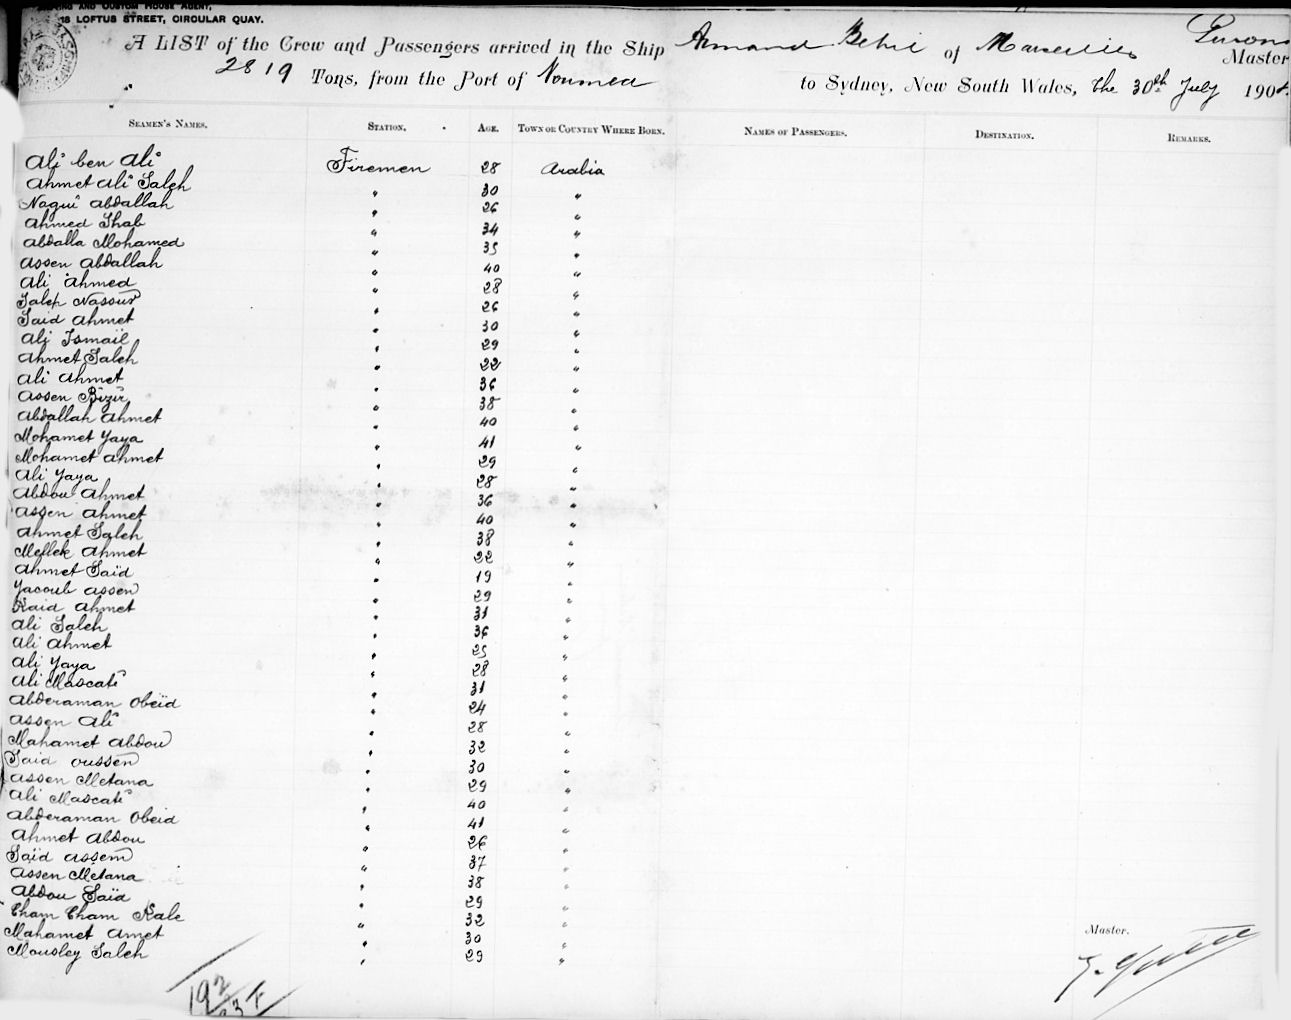 SHIPPING AND CUSTOM HOUSE AGENT,
18 LOFTUS STREET, CIRCULAR QUAY.
A LIST of the Crew and Passengers arrived in the Ship Armand Behic of Marseilles Master
2819 Tons, from the Port of Noumea to Sydney, New South Wales, the 30th July 190
SEAMEN'S NAMES. STATION. AGE. TOWN OR COUNTRY WHERE BORN. NAMES OF PASSENGERS. DESTINATION. REMARKS.
Ali ben Ali Firemen 28 Arabia
Ahmet Ali Saleh " 30 "
Nagui Abdallah " 26 "
Ahmed Shab " 34 "
Abdalla Mohamed " 35 "
Assen Abdallah " 40 "
Ali Ahmed " 28 "
Saleh Nassur " 26 "
Said Ahmet " 30 "
Ali Ismaïl " 29 "
Ahmet Saleh " 22 "
Ali Ahmet " 36 "
Assen Bizir " 38 "
Abdallah Ahmet " 40 "
Mohamet Yaya " 41 "
Mohamet Ahmet " 29 "
Ali Yaya " 28 "
Abdou Ahmet " 36 "
Assen Ahmet " 40 "
Ahmet Saleh " 38 "
Mellek Ahmet " 22 "
Ahmet Saïd " 19 "
Yacoub Assen " 29 "
Kaid Ahmet " 31 "
Ali Saleh " 36 "
Ali Ahmet " 25 "
Ali Yaya " 28 "
Ali Mascati " 31 "
Abderaman Obeïd " 24 "
Assen Ali " 28 "
Mahamet Abdou " 32 "
Said oussen " 30 "
Assen Metana " 29 "
Ali Mascati " 40 "
Abderaman Obeid " 41 "
Ahmet Abdou " 26 "
Saïd Assem " 37 "
Assen Metana " 38 "
Abdou Saïd " 29 "
Cham Cham Kale " 32 "
Mahamet Amet " 30 "
Mousley Saleh " 29 "
Master.
192